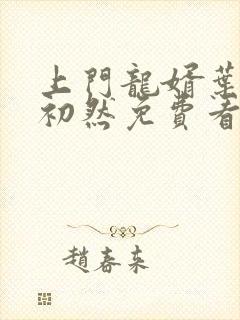 上門龍婿葉
初然免費看
趙春來